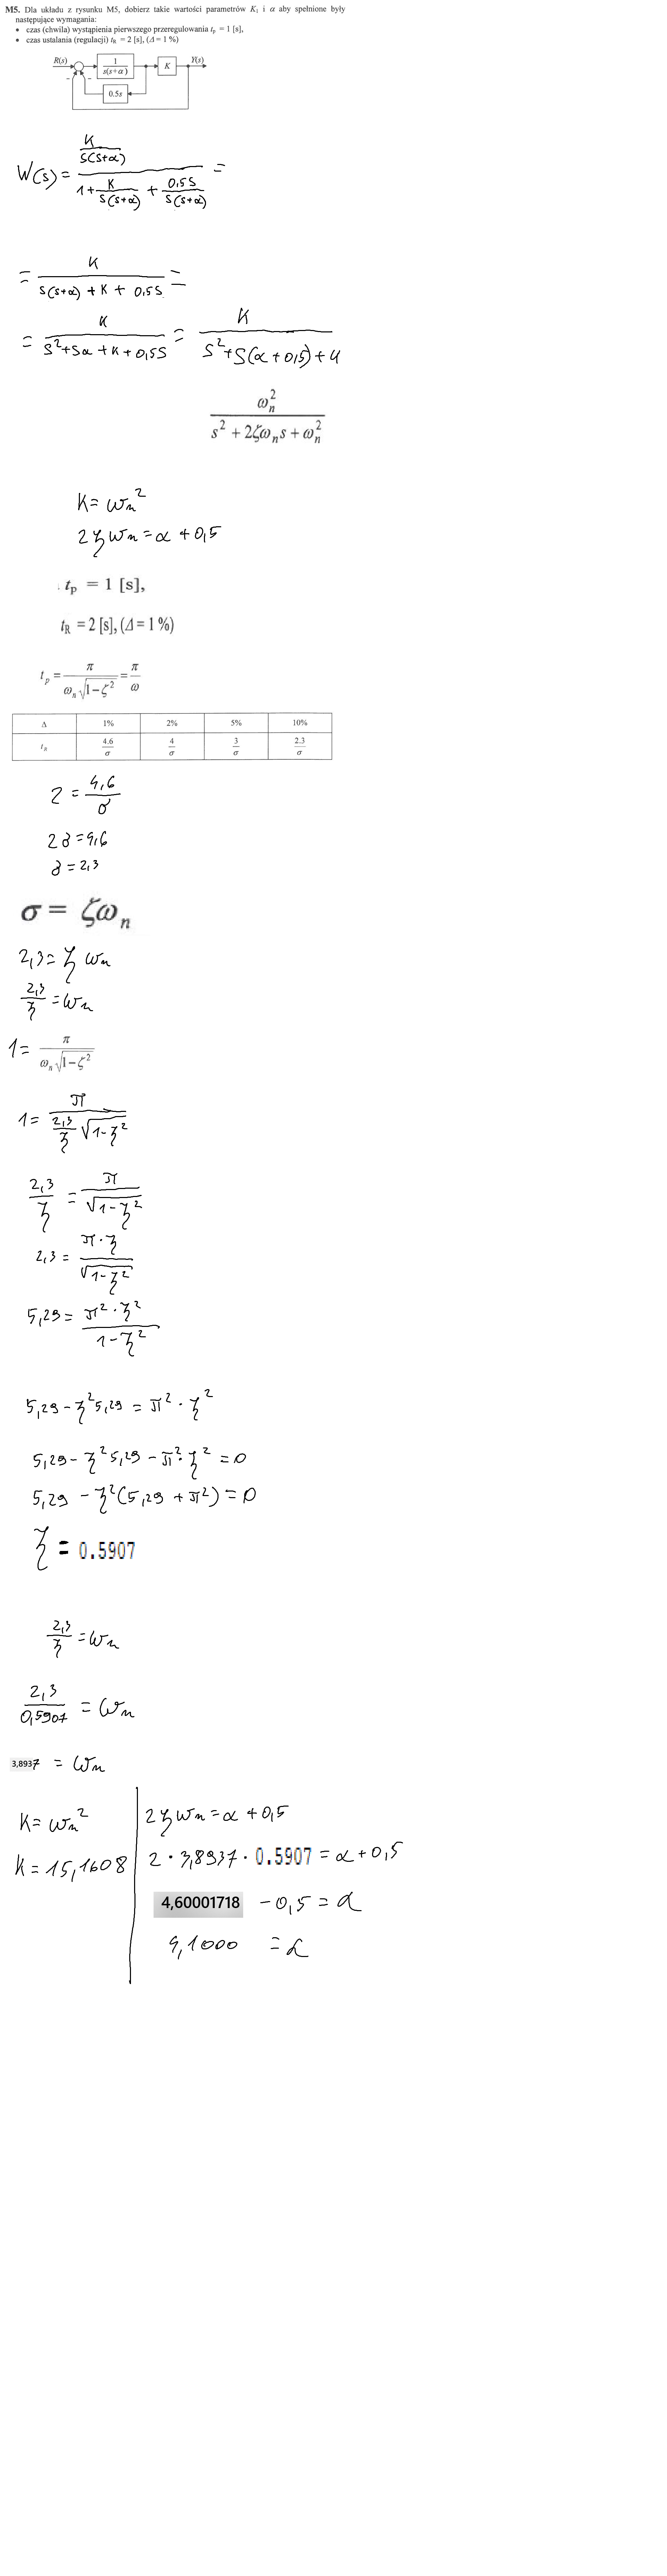 M5. Dla układu z rysunku M5, dobierz takie wartości parametrów K₁ i α aby spełnione były
następujące wymagania:
• czas (chwila) wystąpienia pierwszego przeregulowania tₚ = 1 [s],
• czas ustalania (regulacji) t_R = 2 [s], (Δ = 1 %)
R(s) 1/(s(s+α)) K Y(s)
− −
0.5s
W(s) = (K/(s(s+α))) / (1 + K/(s(s+α)) + 0,5s/(s(s+α))) =
= K/(s(s+α) + K + 0,5s) =
= K/(s² + sα + K + 0,5s) = K/(s² + s(α + 0,5) + K)
ωₙ²/(s² + 2ζωₙs + ωₙ²)
K = ωₙ²
2ζωₙ = α + 0,5
tₚ = 1 [s],
t_R = 2 [s], (Δ = 1 %)
tₚ = π/(ωₙ√(1−ζ²)) = π/ω
Δ 1% 2% 5% 10%
t_R 4.6/σ 4/σ 3/σ 2.3/σ
2 = 4,6/σ
2σ = 4,6
σ = 2,3
σ = ζωₙ
2,3 = ζ ωₙ
2,3/ζ = ωₙ
1 = π/(ωₙ√(1−ζ²))
1 = π/((2,3/ζ)√(1−ζ²))
2,3/ζ = π/√(1−ζ²)
2,3 = π·ζ/√(1−ζ²)
5,29 = π²·ζ²/(1−ζ²)
5,29 − ζ²5,29 = π²·ζ²
5,29 − ζ²5,29 − π²·ζ² = 0
5,29 − ζ²(5,29 + π²) = 0
ζ = 0.5907
2,3/ζ = ωₙ
2,3/0,5907 = ωₙ
3,8937 = ωₙ
K = ωₙ²
K = 15,1608
2ζωₙ = α + 0,5
2 · 3,8937 · 0.5907 = α + 0,5
4,60001718 − 0,5 = α
4,1000 = α